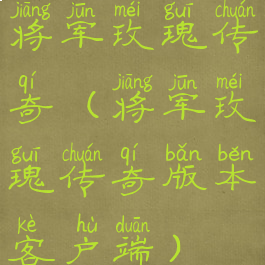 jiāng jūn méi guī chuán
将军玫瑰传
qí jiāng jūn méi
奇（将军玫
guī chuán qí bǎn běn
瑰传奇版本
kè hù duān
客户端）